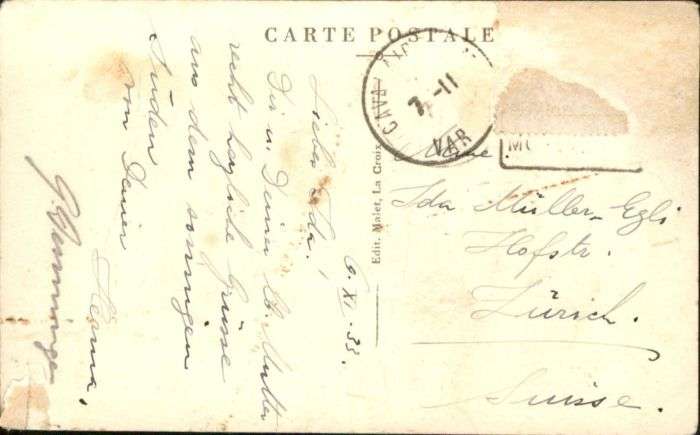 CARTE POSTALE
CAVA
7 -11
VAR
Edit. Malet, La Croix
6. XI. 33.
Liebe Ida!
Dir u. Deiner lb. Mutter
recht herzliche Grüsse
aus dem sonnigen
Süden
von Deiner
Mme.
Ida Müller-Egli
Hofstr.
Zürich.
Suisse.